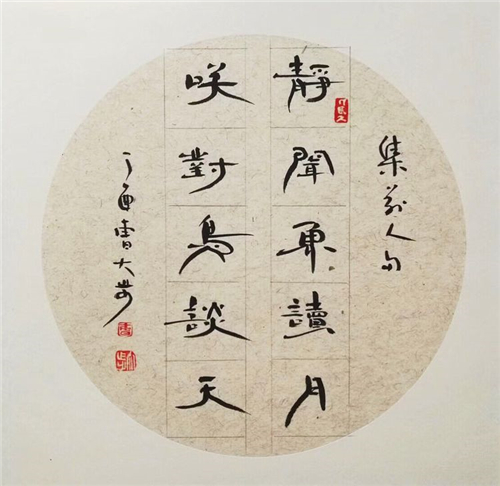 集前人句
靜聞魚讀月
咲對鳥談天
丁酉曹大